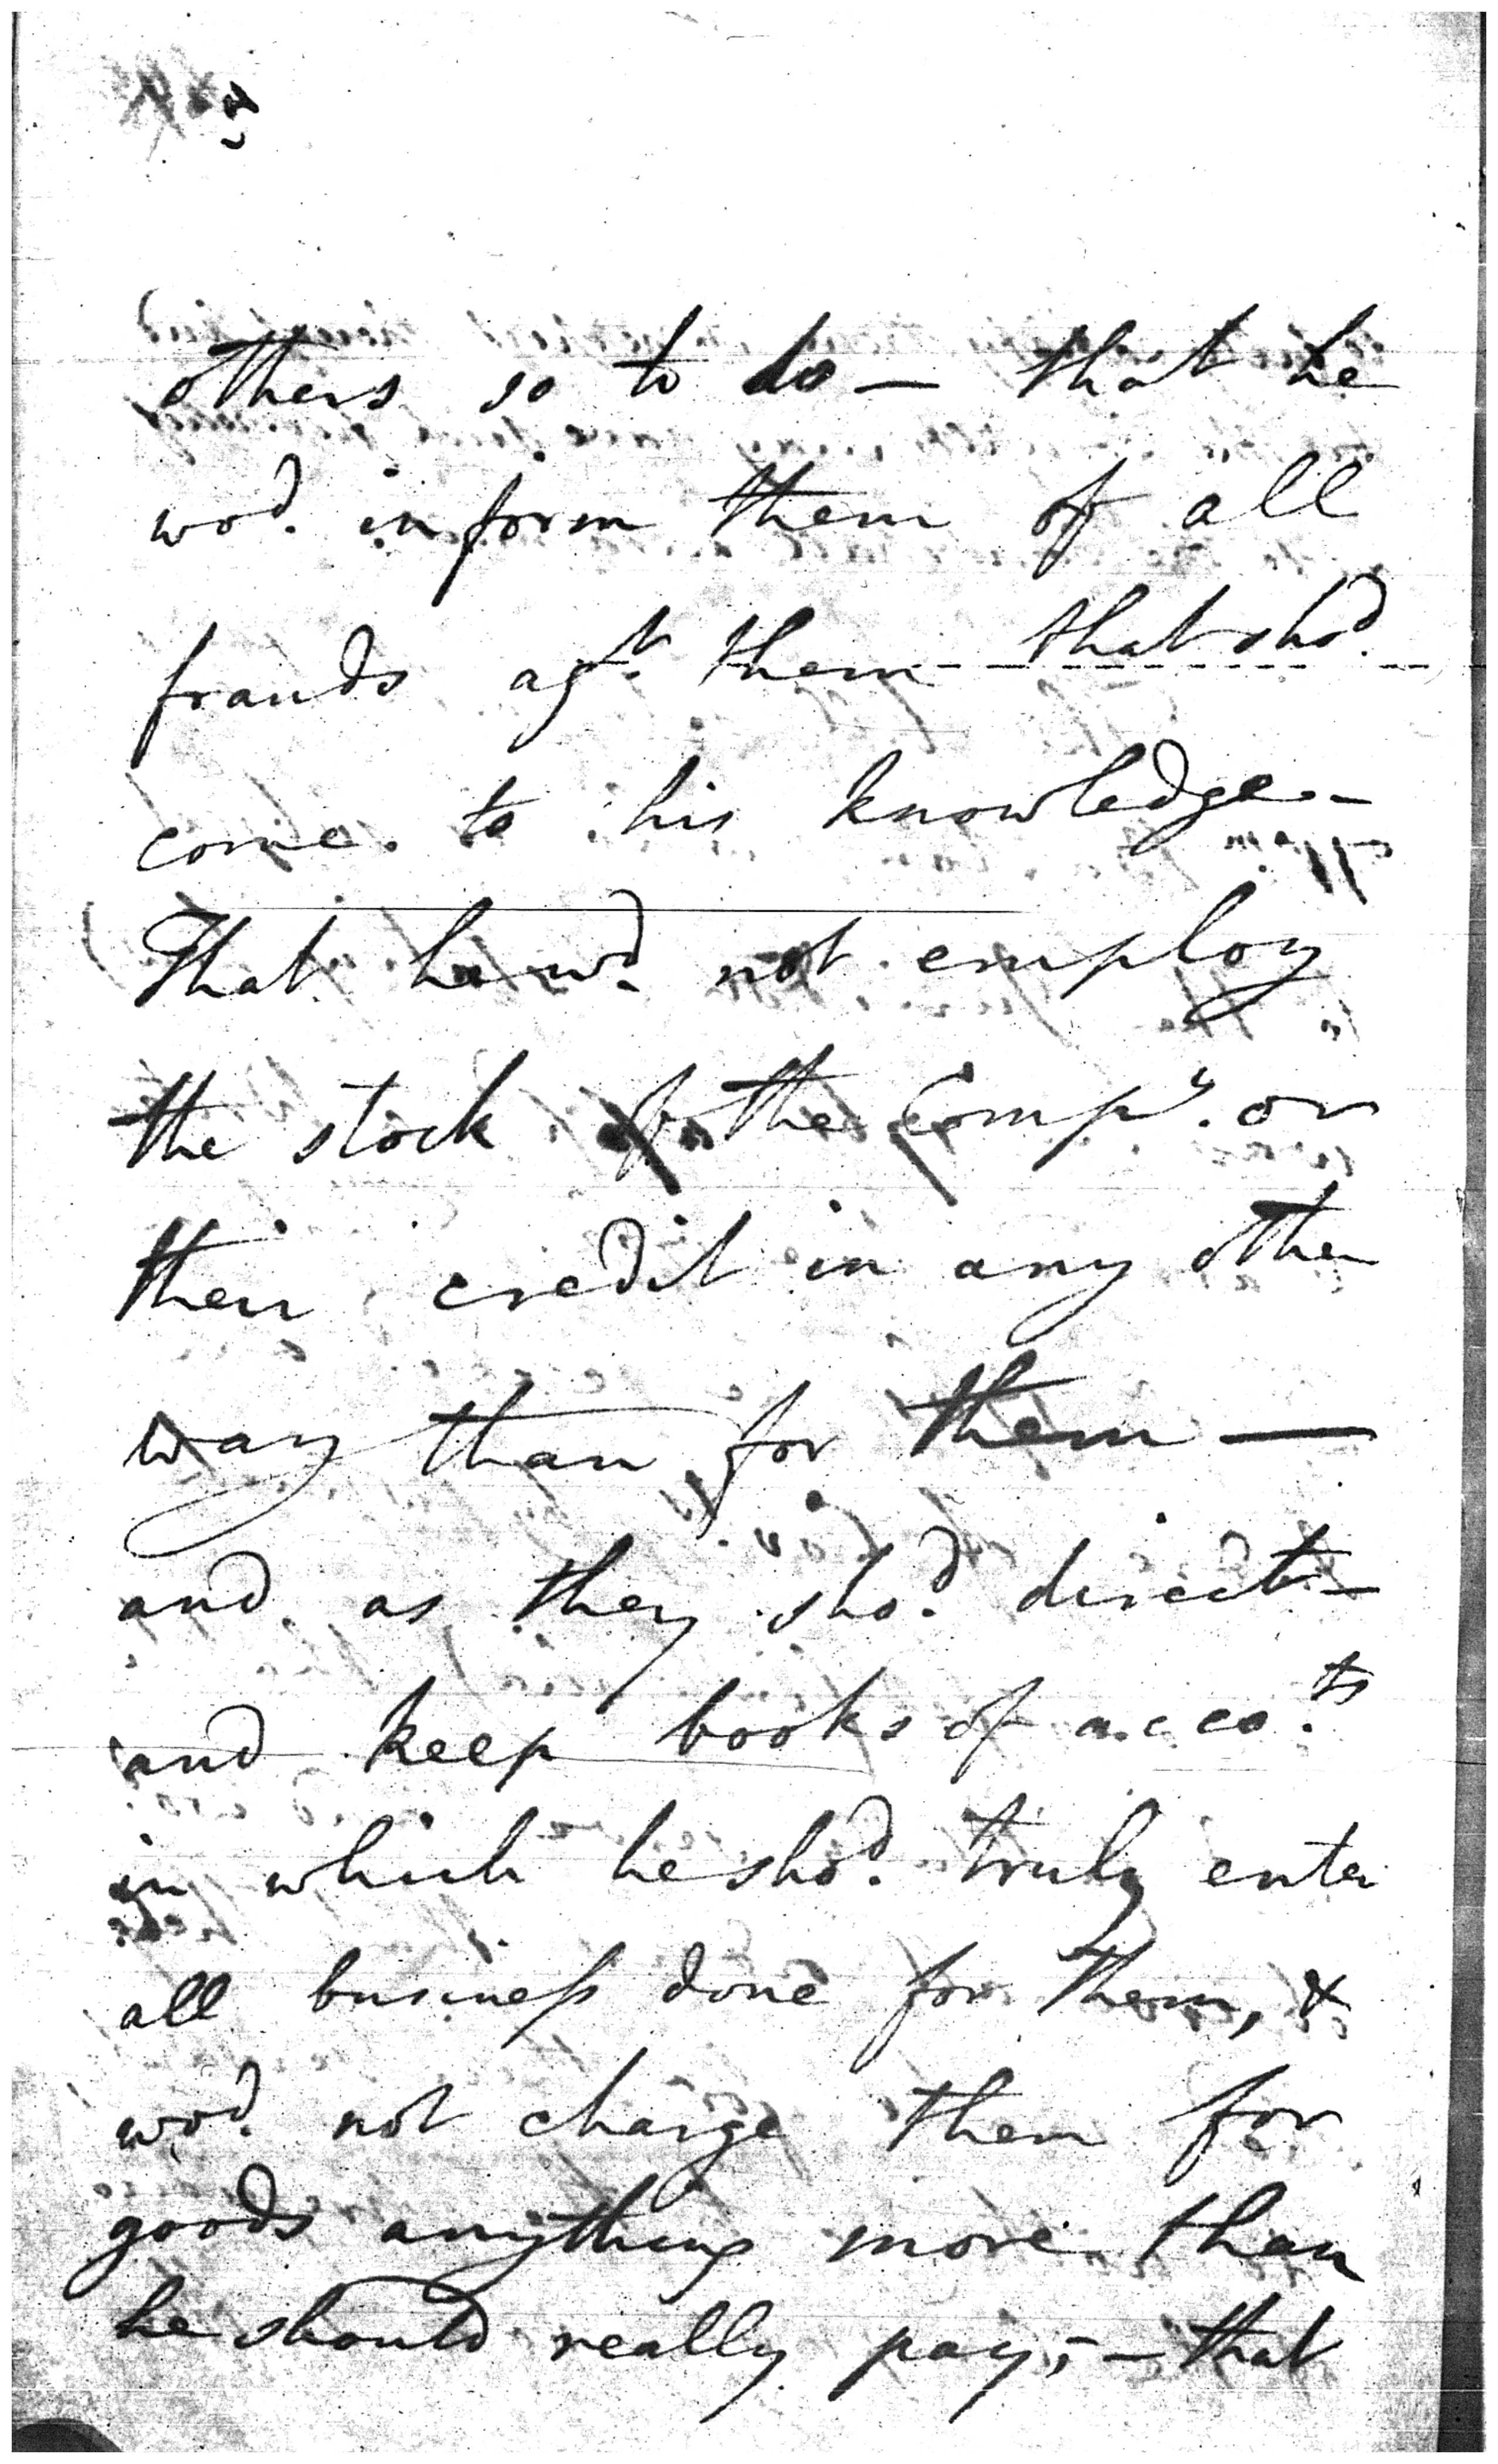 others so to do — that he
wod. inform them of all
frauds agt. them that shod.
come to his knowledge —
That he wd. not employ
the stock of the Compy. or
their credit in any other
way than for them —
and as they shod. direct —
and keep books of accots.
in which he shod. truly enter
all business done for them, &
wod. not charge them for
goods anything more than
he should really pay; — that